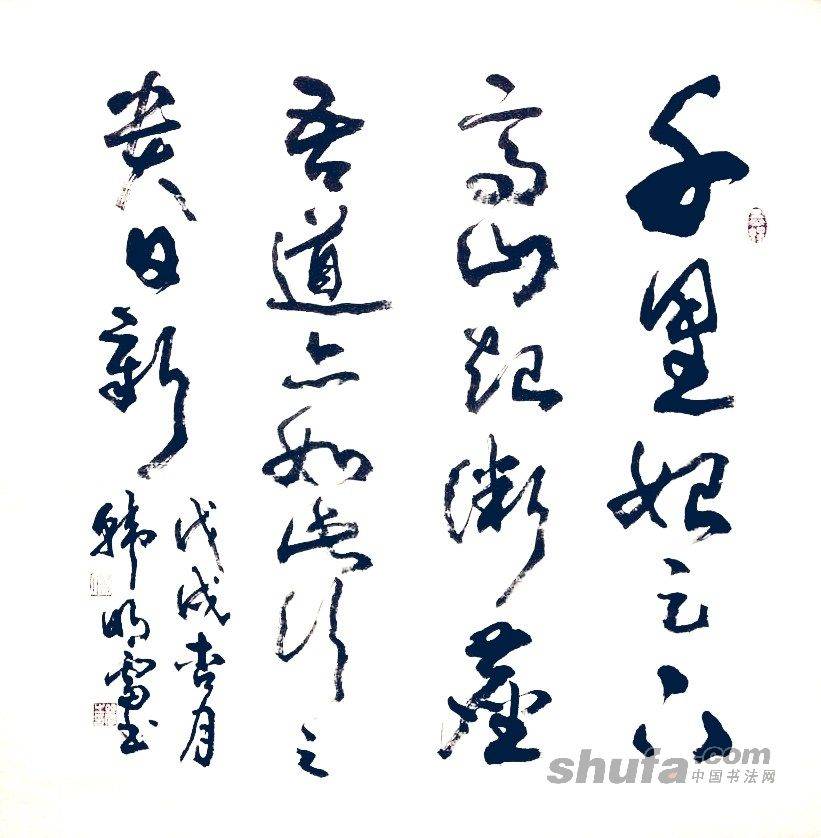 千里始足下
高山起微塵
吾道亦如此行之
貴日新
戊戌杏月
韩明书
shufa.com
中国书法网